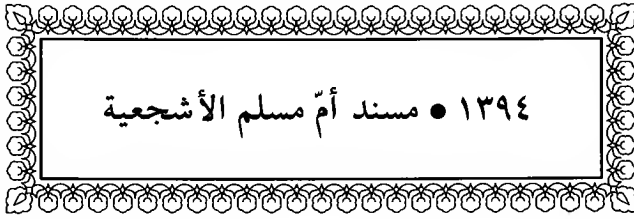 ١٣٩٤ • مسند أمّ مسلم الأشجعية